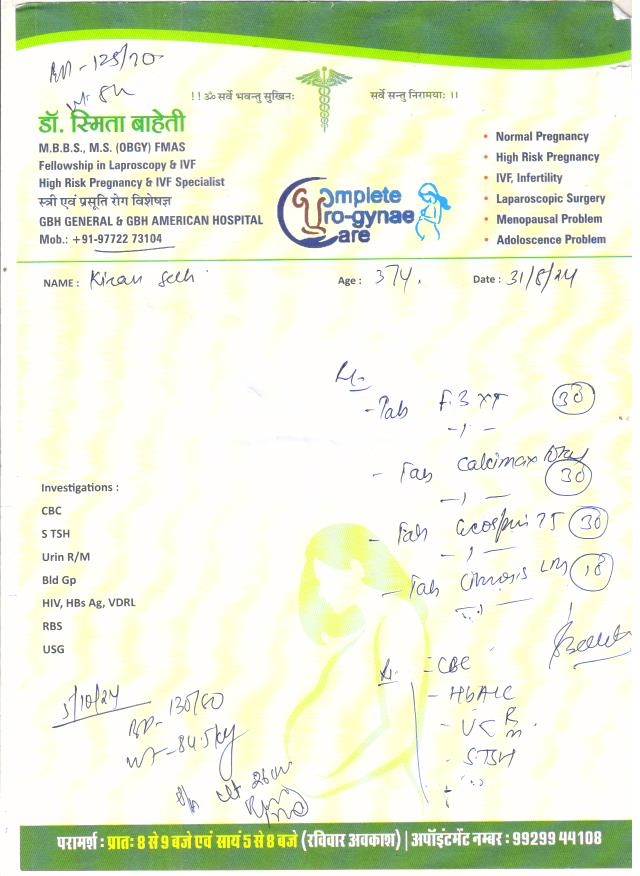 BP - 125/70
Wt-
!! ॐ सर्वे भवन्तु सुखिनः सर्वे सन्तु निरामयाः !!
डॉ. स्मिता बाहेती
M.B.B.S., M.S. (OBGY) FMAS
Fellowship in Laproscopy & IVF
High Risk Pregnancy & IVF Specialist
स्त्री एवं प्रसूति रोग विशेषज्ञ
GBH GENERAL & GBH AMERICAN HOSPITAL
Mob.: +91-97722 73104
Complete
Uro-gynae
Care
• Normal Pregnancy
• High Risk Pregnancy
• IVF, Infertility
• Laparoscopic Surgery
• Menopausal Problem
• Adoloscence Problem
NAME : Kiran Age : 37y. Date : 31/8/24
- Tab (30)
- Tab Calcimax (30)
- Tab Ecosprin 75 (30)
- Tab (18)
Investigations :
CBC
S TSH
Urin R/M
Bld Gp
HIV, HBs Ag, VDRL
RBS
USG
- CBC
- HbA1C
- S.TSH
5/10/24
BP - 130/80
WT - 84.5kg
परामर्श : प्रातः 8 से 9 बजे एवं सायं 5 से 8 बजे (रविवार अवकाश) | अपॉइंटमेंट नम्बर : 99299 44108